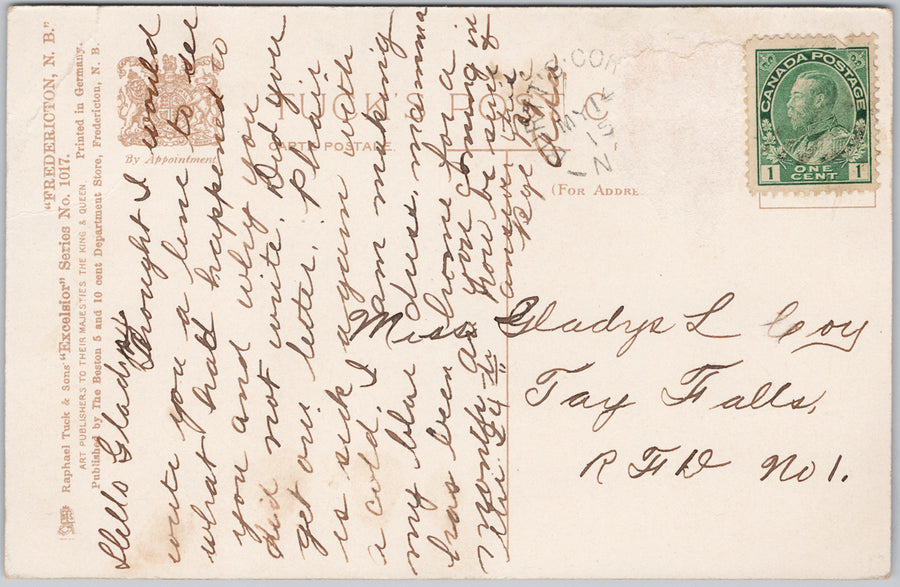 "FREDERICTON, N. B."
Raphael Tuck & Sons' "Excelsior" Series No. 1017.
ART PUBLISHERS TO THEIR MAJESTIES THE KING & QUEEN. Printed in Germany.
Published by The Boston 5 and 10 cent Department Store, Fredericton, N. B.
By Appointment
TUCK'S PO C
CARTE POSTALE.
(FOR ADDRE
COR
MY 14
15
N
CANADA POSTAGE
1 ONE CENT 1
Hello Gladys
Thought I would
write you a line to see
what had happened to
you and why you
did not write. Did you
get our letter. Phair
is sick again with
a cold. I am making
my blue dress, mamma
has been home for a
month. are you coming in
the 24" you be sure &
answer this
Bye
Miss Gladys L Coy
Tay Falls,
R F D No 1.